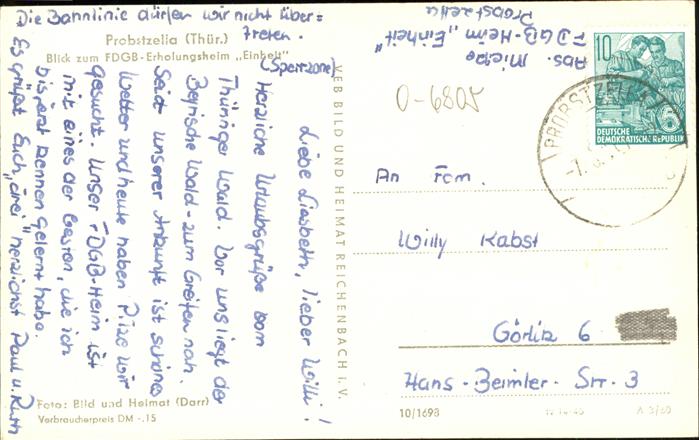 Die Bannlinie dürfen wir nicht über=
treten.
(Sperrzone)
Probstzella (Thür.)
Blick zum FDGB-Erholungsheim „Einheit"
Liebe Liesbeth, lieber Willi!
Herzliche Urlaubsgrüße vom
Thüringer Wald. Vor uns liegt der
Bayrische Wald - zum Greifen nah.
Seit unserer Ankunft ist schönes
Wetter und heute haben Pilze wir
gesucht. Unser FDGB-Heim ist
mit eines der besten, die ich
bis jetzt kennen gelernt habe.
Es grüßt Euch „drei" herzlichst Paul u. Ruth
Foto: Bild und Heimat (Darr)
Verbraucherpreis DM -.15
VEB BILD UND HEIMAT REICHENBACH i. V.
Abs. Mietze
FDGB-Heim „Einheit"
Probstzella
O-6805
10
DEUTSCHE
DEMOKRATISCHE REPUBLIK
PROBSTZELLA
An Fam.
Willy Kabst
Görlitz 6
Hans-Beimler-Str. 3
10/1698
A 3/60